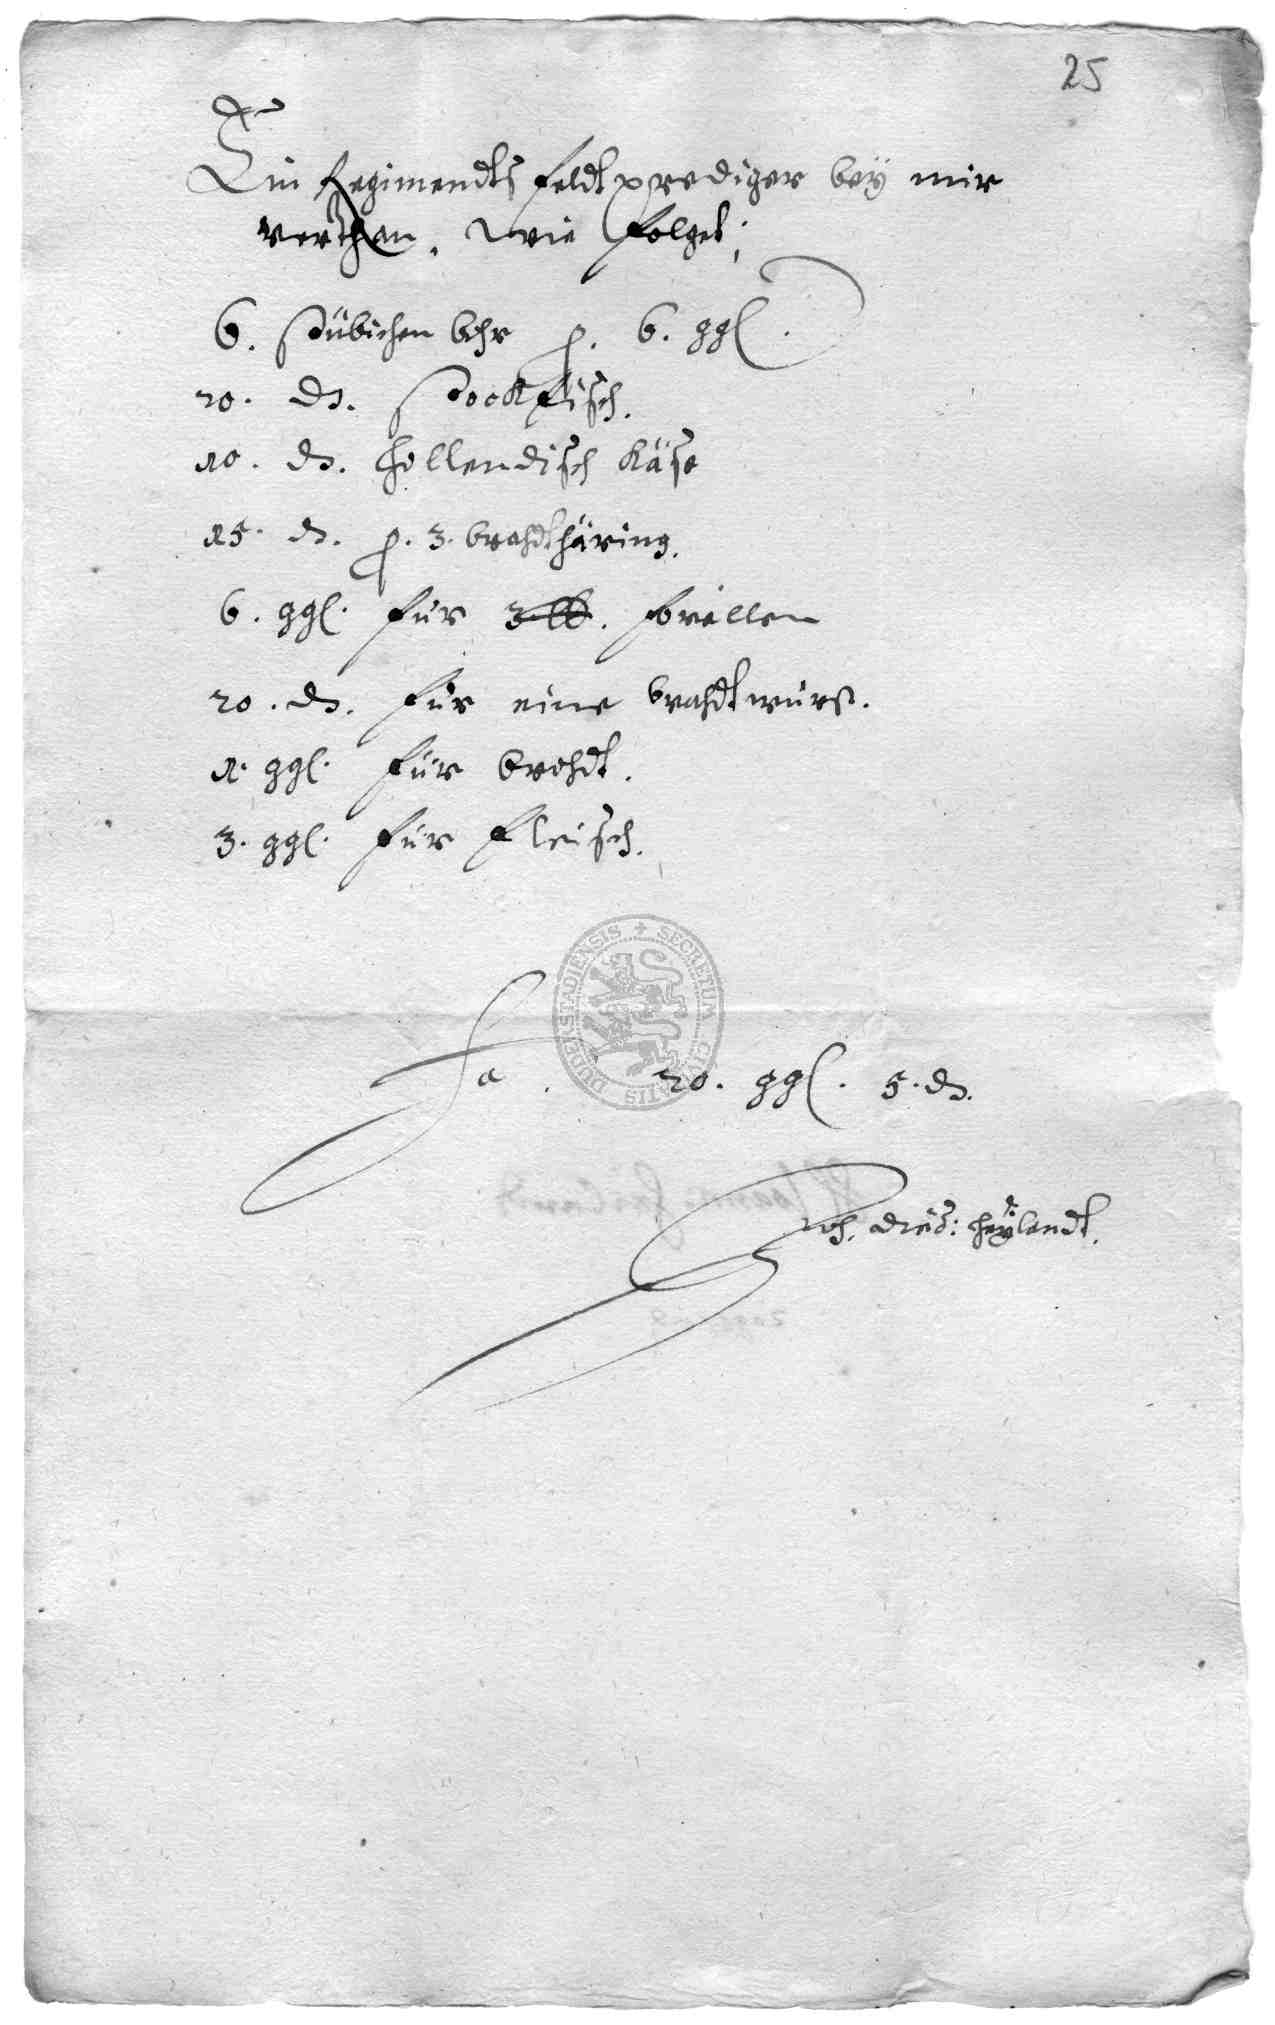 25
Ein Regimendts feldtprediger beÿ mir
verthan, wie folget;
6. stübichen behr p. 6. ggl.
20. d. stockfisch.
10. d. hollendisch Käse
15. d. p. 3. brahdthäring.
6. ggl. für 3 lb. forellen
20. d. für eine brahdtwurst.
1. ggl. für brohdt.
3. ggl. für fleisch.
SECRETUM CIVITATIS DUDERSTADIENSIS
Sa. 20. ggl. 5. d.
Joh. heÿlandt.